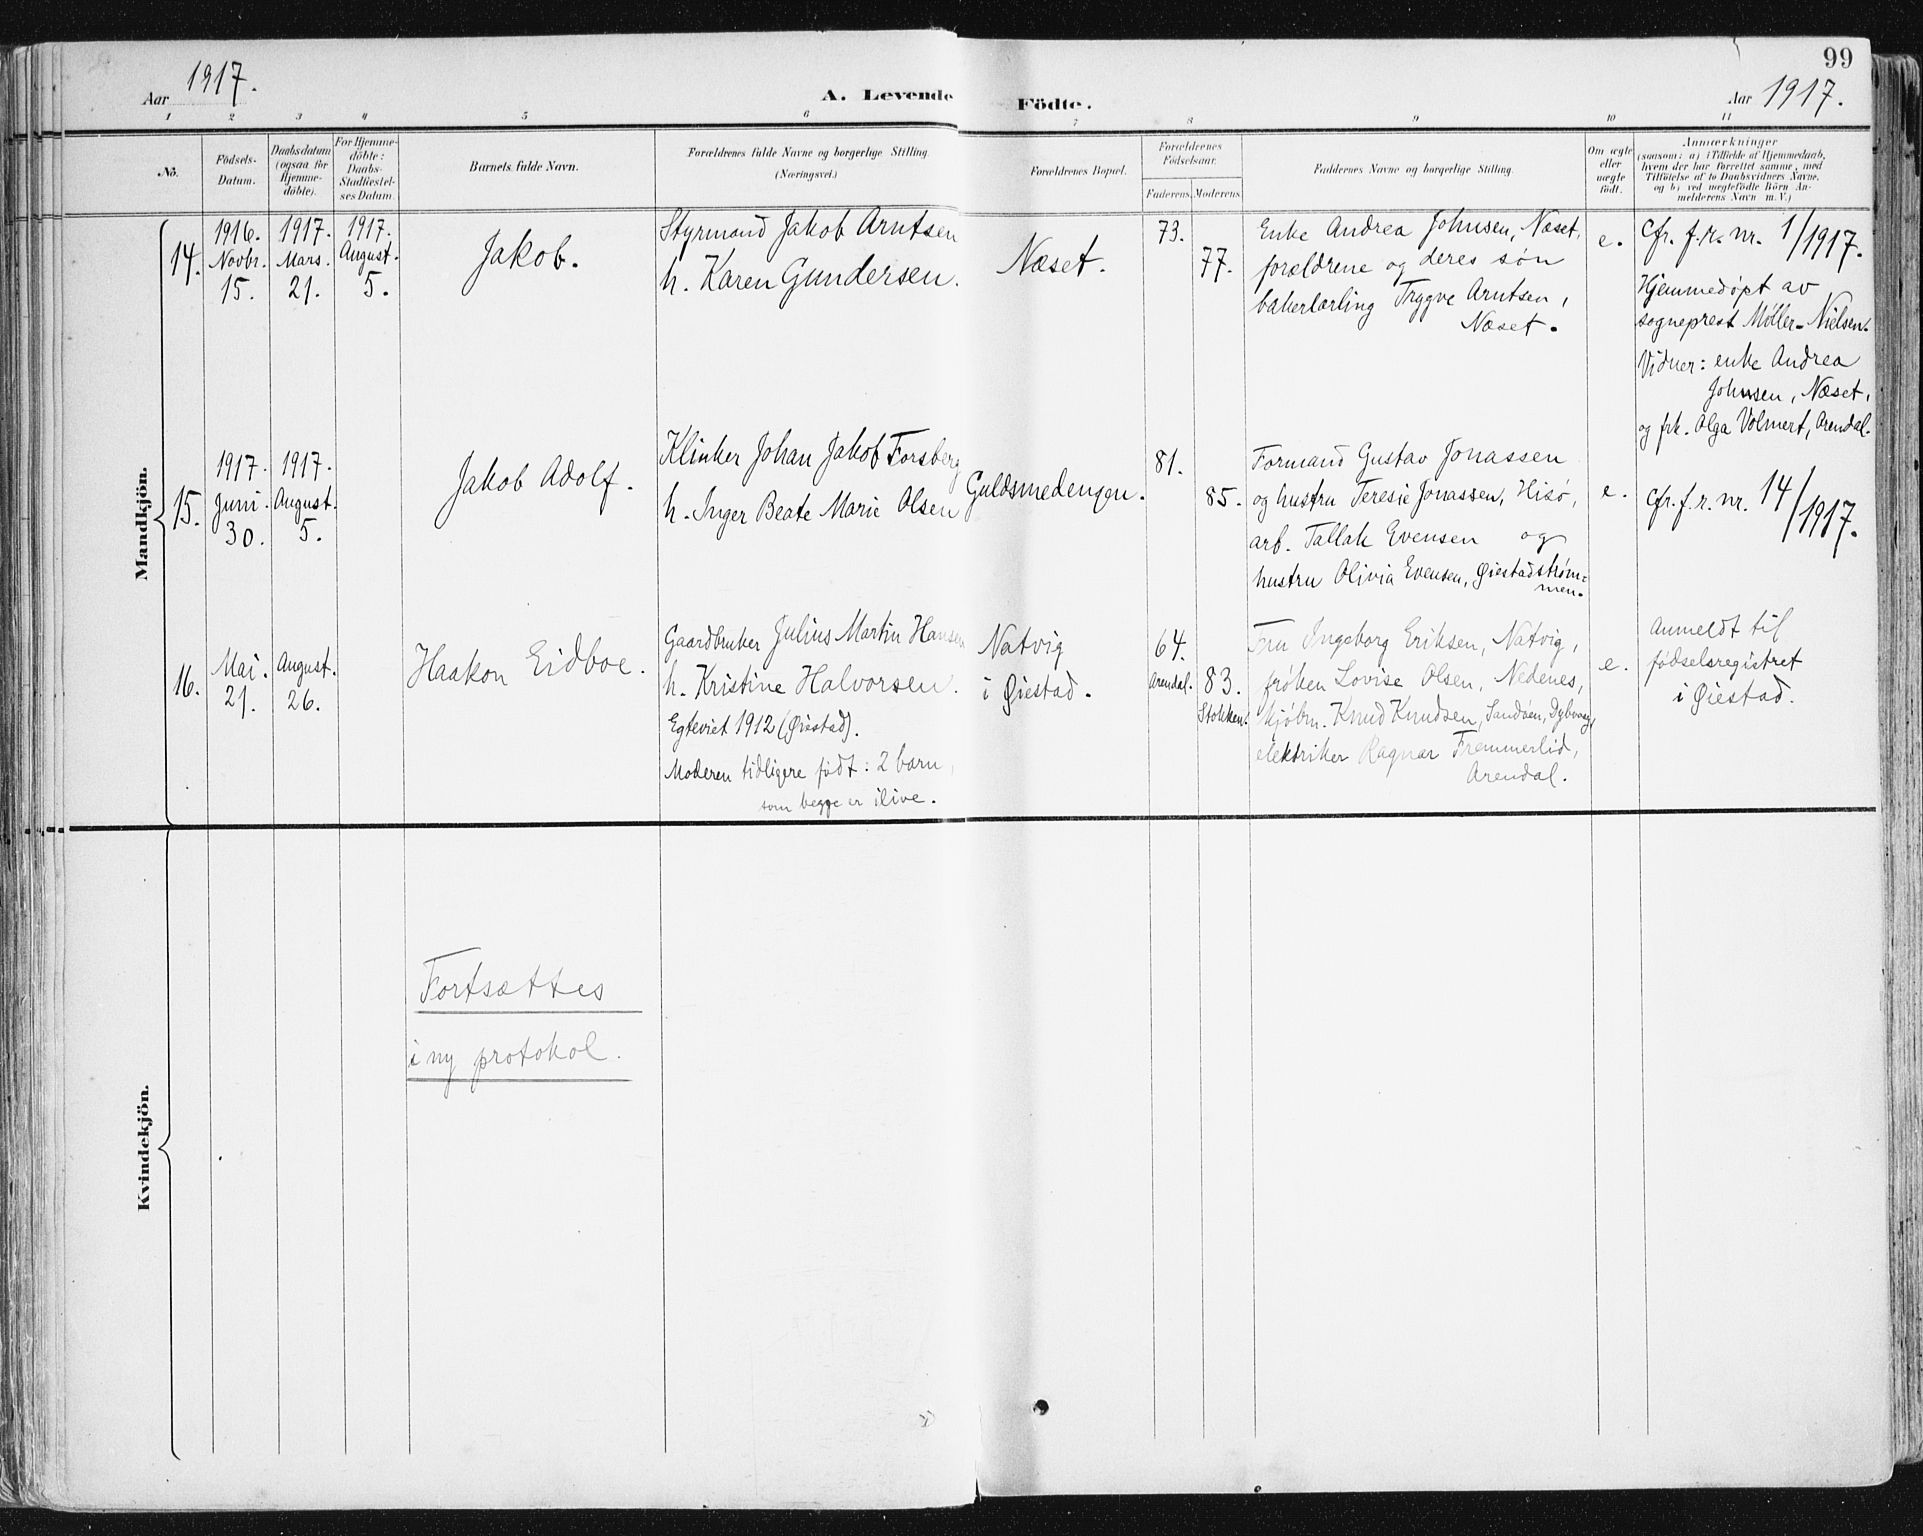 99
Aar 1917.
A. Levende Födte.
Aar 1917.
1 2 3 4 5 6 7 8 9 10 11
No.
Födsels-
Datum.
Daabsdatum
(ogsaa for
Hjemme-
döbte).
For Hjemme-
döbte:
Daabs-
Stadfæstel-
ses Datum.
Barnets fulde Navn.
Forældrenes fulde Navne og borgerlige Stilling
(Næringsvei.)
Forældrenes Bopæl.
Forældrenes
Födselsaar.
Faderens.
Moderens.
Faddernes Navne og borgerlige Stilling.
Om ægte
eller
uægte
födt.
Anmærkninger
(saasom: a) i Tilfælde af Hjemmedaab,
hvem der har forrettet samme, med
Tilföielse af to Daabsvidners Navne,
og b) ved uægtefödte Börn An-
melderens Navn m. V.)
Mandkjön.
14.
1916.
Novbr.
15.
1917.
Mars.
21.
1917.
August.
5.
Jakob.
Styrmand Jakob Arntsen
h. Karen Gundersen.
Næset.
73.
77.
Enke Andrea Johnsen, Næset,
forældrene og deres søn
bakerlærling Trygve Arntsen,
Næset.
e.
Cfr. f.r. nr. 1/1917.
Hjemmedøpt av
sogneprest Møller-Nielsen.
Vidner: enke Andrea
Johnsen, Næset,
og frk. Olga Volmert, Arendal.
15.
1917.
Juni.
30.
1917.
August.
5.
Jakob Adolf.
Klinker Johan Jakob Forsberg
h. Inger Beate Marie Olsen
Guldsmedengen.
81.
85.
Formand Gustav Jonassen
og hustru Teresie Jonassen, Hisø,
arb. Tallak Evensen og
hustru Olivia Evensen, Øiestadstrøm-
men.
e.
Cfr. f.r. nr. 14/1917.
16.
Mai.
21.
August.
26.
Haakon Eidboe.
Gaardbruker Julius Martin Hansen
h. Kristine Halvorsen.
Egteviet 1912 (Øiestad).
Moderen tidligere født: 2 barn,
som begge er ilive.
Natvig
i Øiestad.
64.
Arendal.
83.
Stokken.
Fru Ingeborg Eriksen, Natvig,
frøken Lovise Olsen, Nedenes,
kjøbm. Knud Knudsen, Sandøen, Dybvaag,
elektriker Ragnar Fremmerlid,
Arendal.
e.
Anmeldt til
fødselsregistret
i Øiestad.
Kvindekjön.
Fortsættes
i ny protokol.